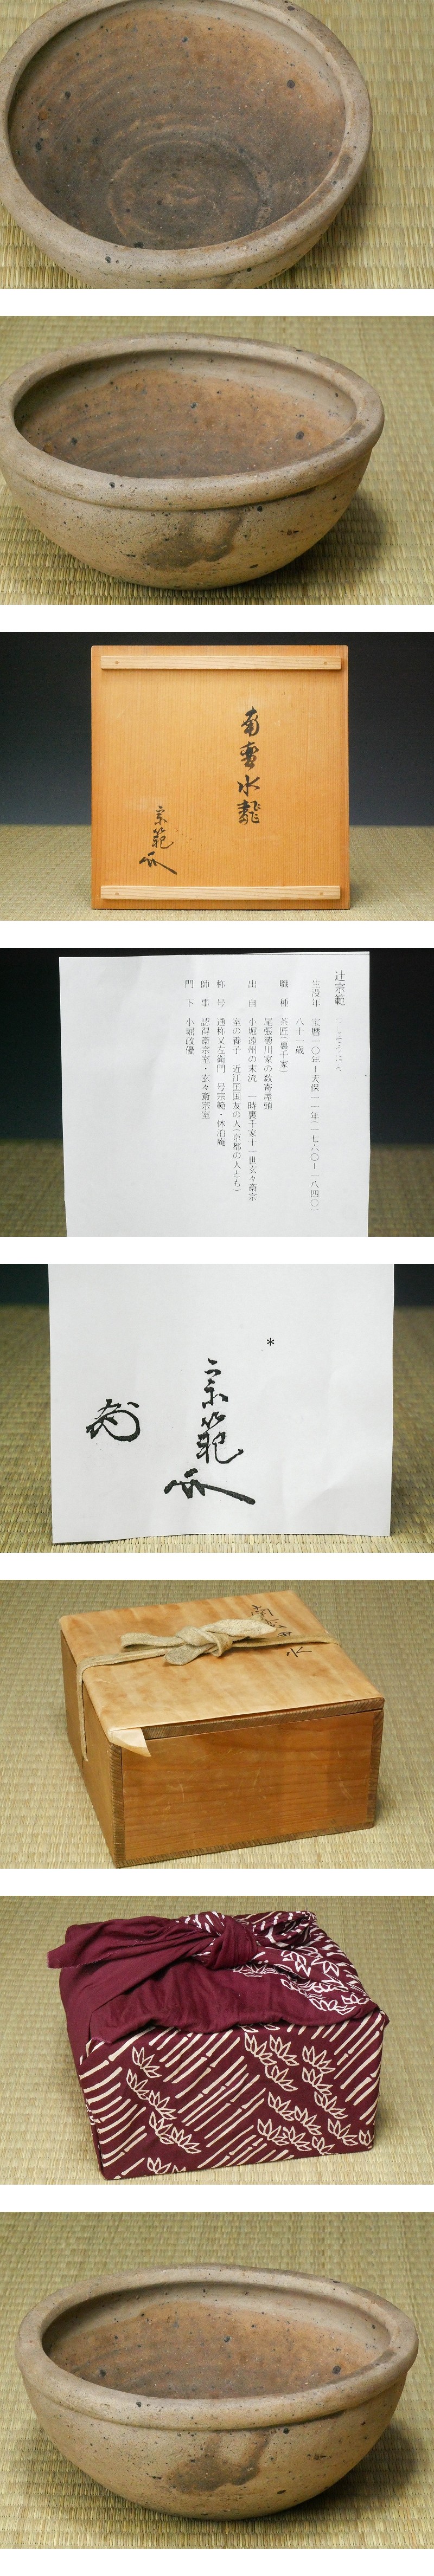 南蛮水龍
宗範
辻宗範
生没年 宝暦一〇年ー天保一一年(一七六〇ー一八四〇)
八十一歳
職種 茶匠(裏千家)
尾張徳川家の数寄屋頭
出自 小堀遠州の末流 一時裏千家十一世玄々斎宗
室の養子 近江国国友の人(京都の人とも)
称号 通称又左衛門 号宗範・休泊庵
師事 認得斎宗室・玄々斎宗室
門下 小堀政優
*
宗範